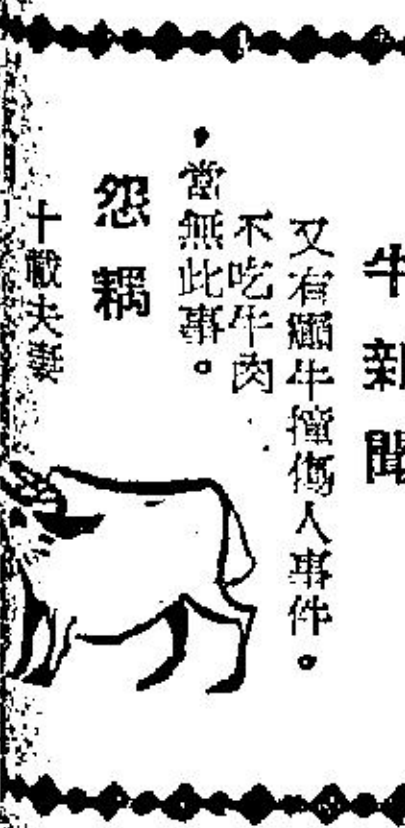 牛新聞
又有癲牛撞傷人事件。
不吃牛肉
，當無此事。
怨耦
十載夫妻